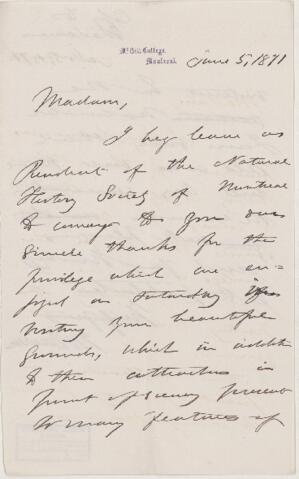 McGill College,
Montreal.
June 5, 1871
Madam,
I beg leave as
President of the Natural
History Society of Montreal
to convey to you our
sincere thanks for the
privilege which we en=
joyed on Saturday in
visiting your beautiful
grounds, which in addition
to their attractions in
point of scenery present
so many features of